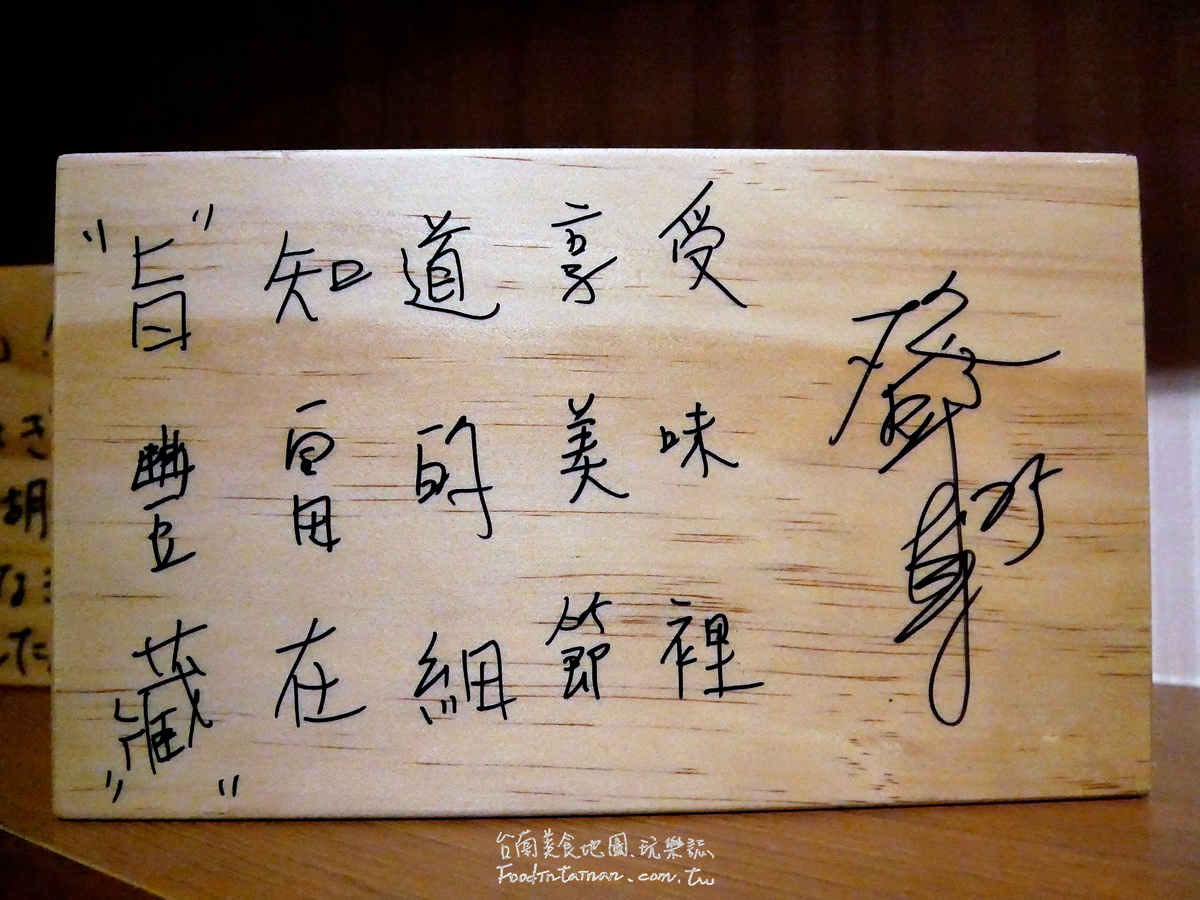 "旨"知道享受
豐富的美味
"藏"在細節裡
き
胡
な
た
台南美食地圖、玩樂誌、
FoodTntainan.com.tw